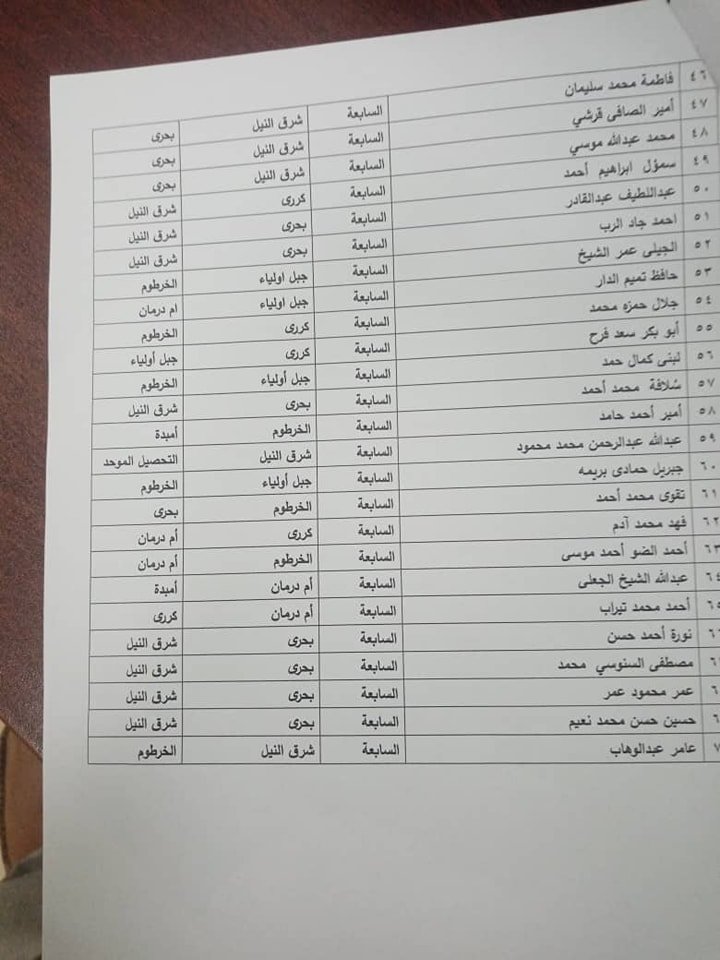 ٤٦ فاطمة محمد سليمان السابعة شرق النيل بحرى
٤٧ أمير الصافى قرشي السابعة شرق النيل بحرى
٤٨ محمد عبدالله موسي السابعة شرق النيل بحرى
٤٩ سمؤل ابراهيم أحمد السابعة كررى شرق النيل
٥٠ عبداللطيف عبدالقادر السابعة بحرى شرق النيل
٥١ احمد جاد الرب السابعة بحرى شرق النيل
٥٢ الجيلى عمر الشيخ السابعة جبل اولياء الخرطوم
٥٣ حافظ تميم الدار السابعة جبل اولياء ام درمان
٥٤ جلال حمزه محمد السابعة كررى الخرطوم
٥٥ أبو بكر سعد فرح السابعة كررى جبل أولياء
٥٦ لبنى كمال حمد السابعة جبل أولياء الخرطوم
٥٧ سلافة محمد أحمد السابعة بحرى شرق النيل
٥٨ أمير أحمد حامد السابعة الخرطوم أمبدة
٥٩ عبدالله عبدالرحمن محمد محمود السابعة شرق النيل التحصيل الموحد
٦٠ جبريل حمادى بريمه السابعة جبل أولياء الخرطوم
٦١ تقوى محمد أحمد السابعة الخرطوم بحرى
٦٢ فهد محمد آدم السابعة كررى أم درمان
٦٣ أحمد الضو أحمد موسى السابعة الخرطوم أم درمان
٦٤ عبدالله الشيخ الجعلى السابعة أم درمان أمبدة
٦٥ أحمد محمد تيراب السابعة أم درمان كررى
نورة أحمد حسن السابعة بحرى شرق النيل
مصطفى السنوسي محمد السابعة بحرى شرق النيل
عمر محمود عمر السابعة بحرى شرق النيل
حسين حسن محمد نعيم السابعة بحرى شرق النيل
عامر عبدالوهاب السابعة شرق النيل الخرطوم